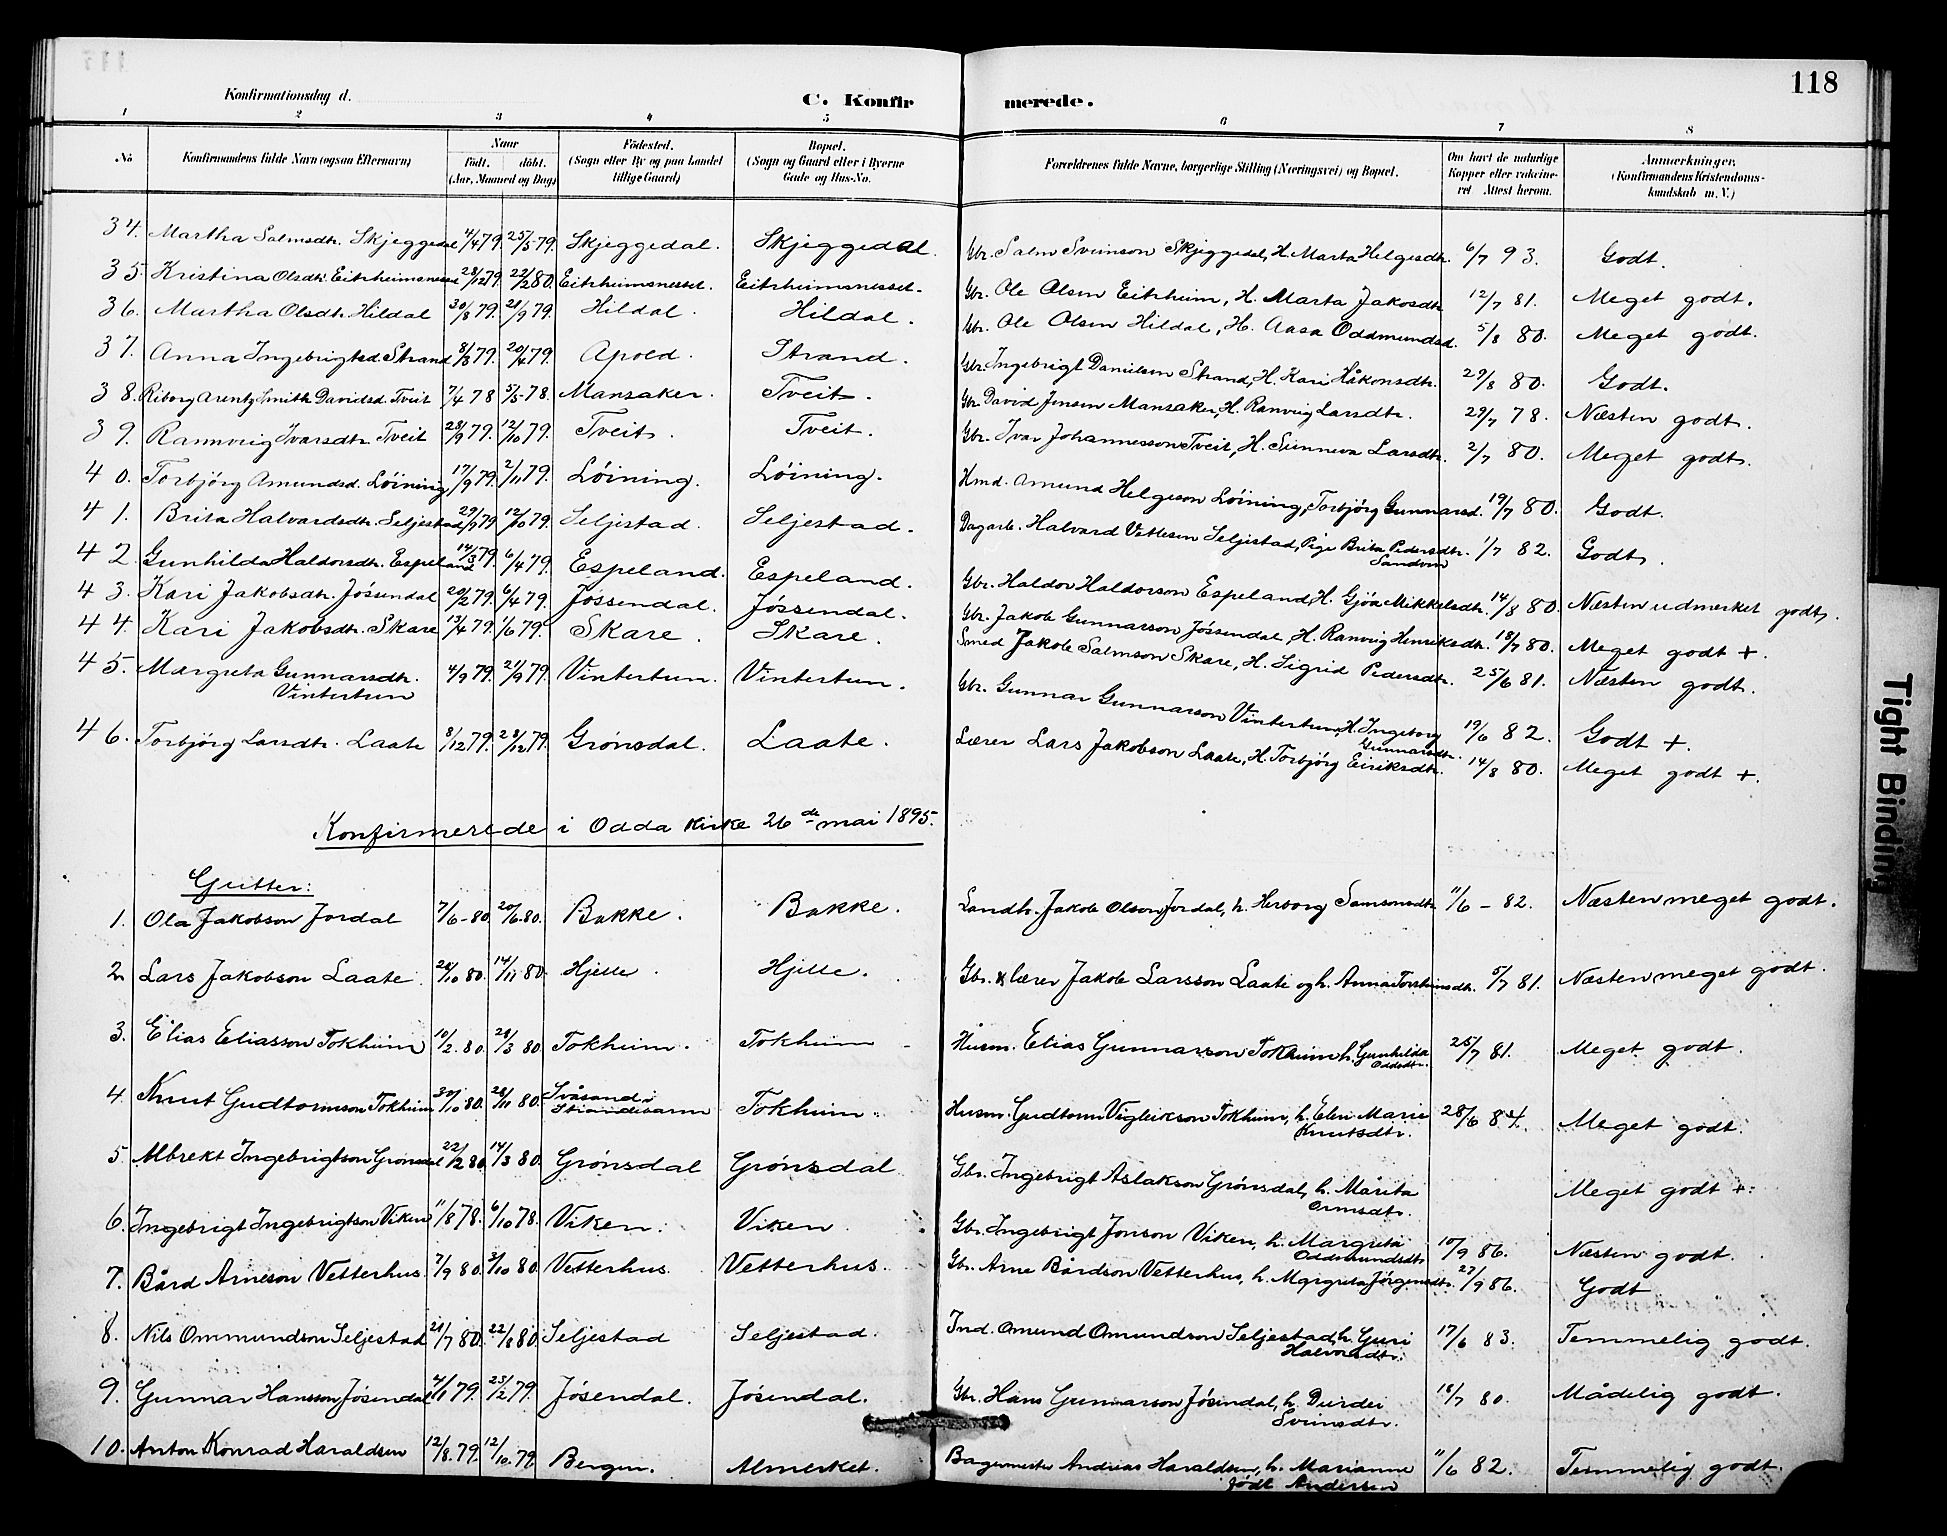 118
Konfirmationsdag d.
C. Konfirmerede.
1 2 3 4 5 6 7 8
No Konfirmandens fulde Navn (ogsaa Efternavn) Naar født. døbt. (Aar, Maaned og Dag) Fødested. (Sogn eller By og paa Landet tillige Gaard) Bopæl. (Sogn og Gaard eller i Byerne Gade og Hus-No. Forældrenes fulde Navne, borgerlige Stilling (Næringsvei) og Bopæl. Om havt de naturlige Kopper eller vakcineret Attest herom. Anmærkninger. (Konfirmandens Kristendomskundskab m. V.)
34. Martha Salmsdtr. Skjeggedal 4/4 79. 25/5 79. Skjeggedal. Skjeggedal. Gbr. Salm Sveinson Skjeggedal, H. Marta Helgesdtr. 6/7 93. Godt.
35. Kristina Olsdtr. Eitrheimsnesset 28/12 79. 22/2 80. Eitrheimsnesset. Eitrheimsnesset. Gbr. Ole Olsen Eitrheim, H. Marta Jakosdtr. 12/7 81. Meget godt.
36. Martha Olsdtr. Hildal 30/8 79. 21/9 79. Hildal. Hildal. Gbr. Ole Olsen Hildal, H. Aasa Oddmundsd. 5/8 80. Meget godt.
37. Anna Ingebrigtsd. Strand 8/3 79. 20/4 79. Apold. Strand. Gbr. Ingebrigt Danielsen Strand, H. Kari Håkonsdtr. 29/8 80. Godt.
38. Riborg Arentz Smith Davidsd. Tveit 7/4 78 5/5 78. Mansaker. Tveit. Gbr. David Jensen Mansaker, H. Ranveig Larsdtr. 29/7 78. Næsten godt.
39. Rannveig Ivarsdtr. Tveit 28/9 79. 12/10 79. Tveit. Tveit. Gbr. Ivar Johannesson Tveit, H. Sunneva Larsdtr. 2/7 80. Meget godt.
40. Torbjörg Amundsd. Löining 17/9 79. 2/11 79. Löining. Löining. Kmd. Amund Helgeson Löining, Torbjörg Gunnarsd. 19/7 80. Godt.
41. Brita Halvardsdtr. Seljestad 29/9 79. 12/10 79. Seljestad. Seljestad. Dagarb. Halvard Vetlesen Seljestad, Pige Brita Pedersdtr. Sandvin 1/7 82. Godt.
42. Gunhilda Haldorsdtr. Espeland 14/3 79. 6/4 79. Espeland. Espeland. Gbr. Haldor Haldorson Espeland, H. Gjöa Mikkelsdtr. 14/8 80. Næsten udmerket godt.
43. Kari Jakobsdtr. Jössendal 20/2 79. 6/4 79. Jössendal. Jössendal. Gbr. Jakob Gunnarson Jössendal, H. Ranveig Henriksdtr. 18/7 80. Meget godt +.
44. Kari Jakobsdtr. Skare 13/4 79. 1/6 79. Skare. Skare. Smed Jakob Salmson Skare, H. Sigrid Pedersdtr. 25/6 81. Næsten godt.
45. Margreta Gunnarsdtr. Vintertun 4/9 79. 21/9 79. Vintertun. Vintertun. Gbr. Gunnar Gunnarson Vintertun, H. Ingeborg Gunnarsdtr. 19/6 82. Godt +.
46. Torbjörg Larsdtr. Laate 8/12 79. 28/12 79. Grönsdal. Laate. Lærer Lars Jakobson Laate, H. Torbjörg Eiriksdtr. 14/8 80. Meget godt +.
Konfirmerede i Odda kirke 26de mai 1895.
Gutter:
1. Ola Jakobson Jordal 7/6 - 80. 20/6 80. Bakke. Bakke. Landh. Jakob Olson Jordal, h. Herborg Samsonsdtr. 11/6 - 82. Næsten meget godt.
2. Lars Jakobson Laate. 28/10 80. 14/11 80. Hjelle. Hjelle. Gbr. & lærer Jakob Larsson Laate og h. Anna Torsteinsdtr. 5/7 81. Næsten meget godt.
3. Elias Eliasson Tokheim 10/2 80. 29/3 80. Tokheim. Tokheim Husm. Elias Gunnarsson Tokheim h. Gunhilda Oddsdtr. 25/7 81. Meget godt.
4. Knut Gudtormson Tokheim 30/10 80. 28/11 80. Svåsand i Strandebarm Tokheim. Husm. Gudtorm Vigleikson Tokheim, h. Elen Marie Knutsdtr. 28/6 84. Meget godt.
5. Albrekt Ingebrigtson Grønsdal 22/2 80. 14/3 80. Grønsdal Grønsdal Gbr. Ingebrigt Aslakson Grønsdal, h. Mårita Ormsdtr. Meget godt +.
6. Ingebrigt Ingebrigtson Viken 11/8 78. 6/10 78. Viken. Viken. Gbr. Ingebrigt Jonson Viken, h. Margreta Oddmundsdtr 10/9 86. Næsten godt.
7. Bård Arneson Vetterhus 7/9 80. 3/10 80. Vetterhus. Vetterhus. Gbr. Arne Bårdson Vetterhus, h. Margreta Jørgensdtr. 27/9 86. Godt
8. Nils Ommundson Seljestad 21/7 80. 22/8 80. Seljestad Seljestad. Ind. Omund Omundson Seljestad, h. Guri Halvorsdtr. 17/6 83. Temmelig godt.
9. Gunnar Hansson Jøsendal 4/1 79. 23/2 79. Jøsendal. Jøsendal. Gbr. Hans Gunnarson Jøsendal, h. Durdei Sveinsdtr. 18/7 80. Mådelig godt.
10. Anton Konrad Haraldsen 12/8 79. 12/10 79. Bergen. Almerket. Bagermester Andreas Haraldsen, h. Marianne født Andersen 11/6 82. Temmelig godt.
Tight Binding